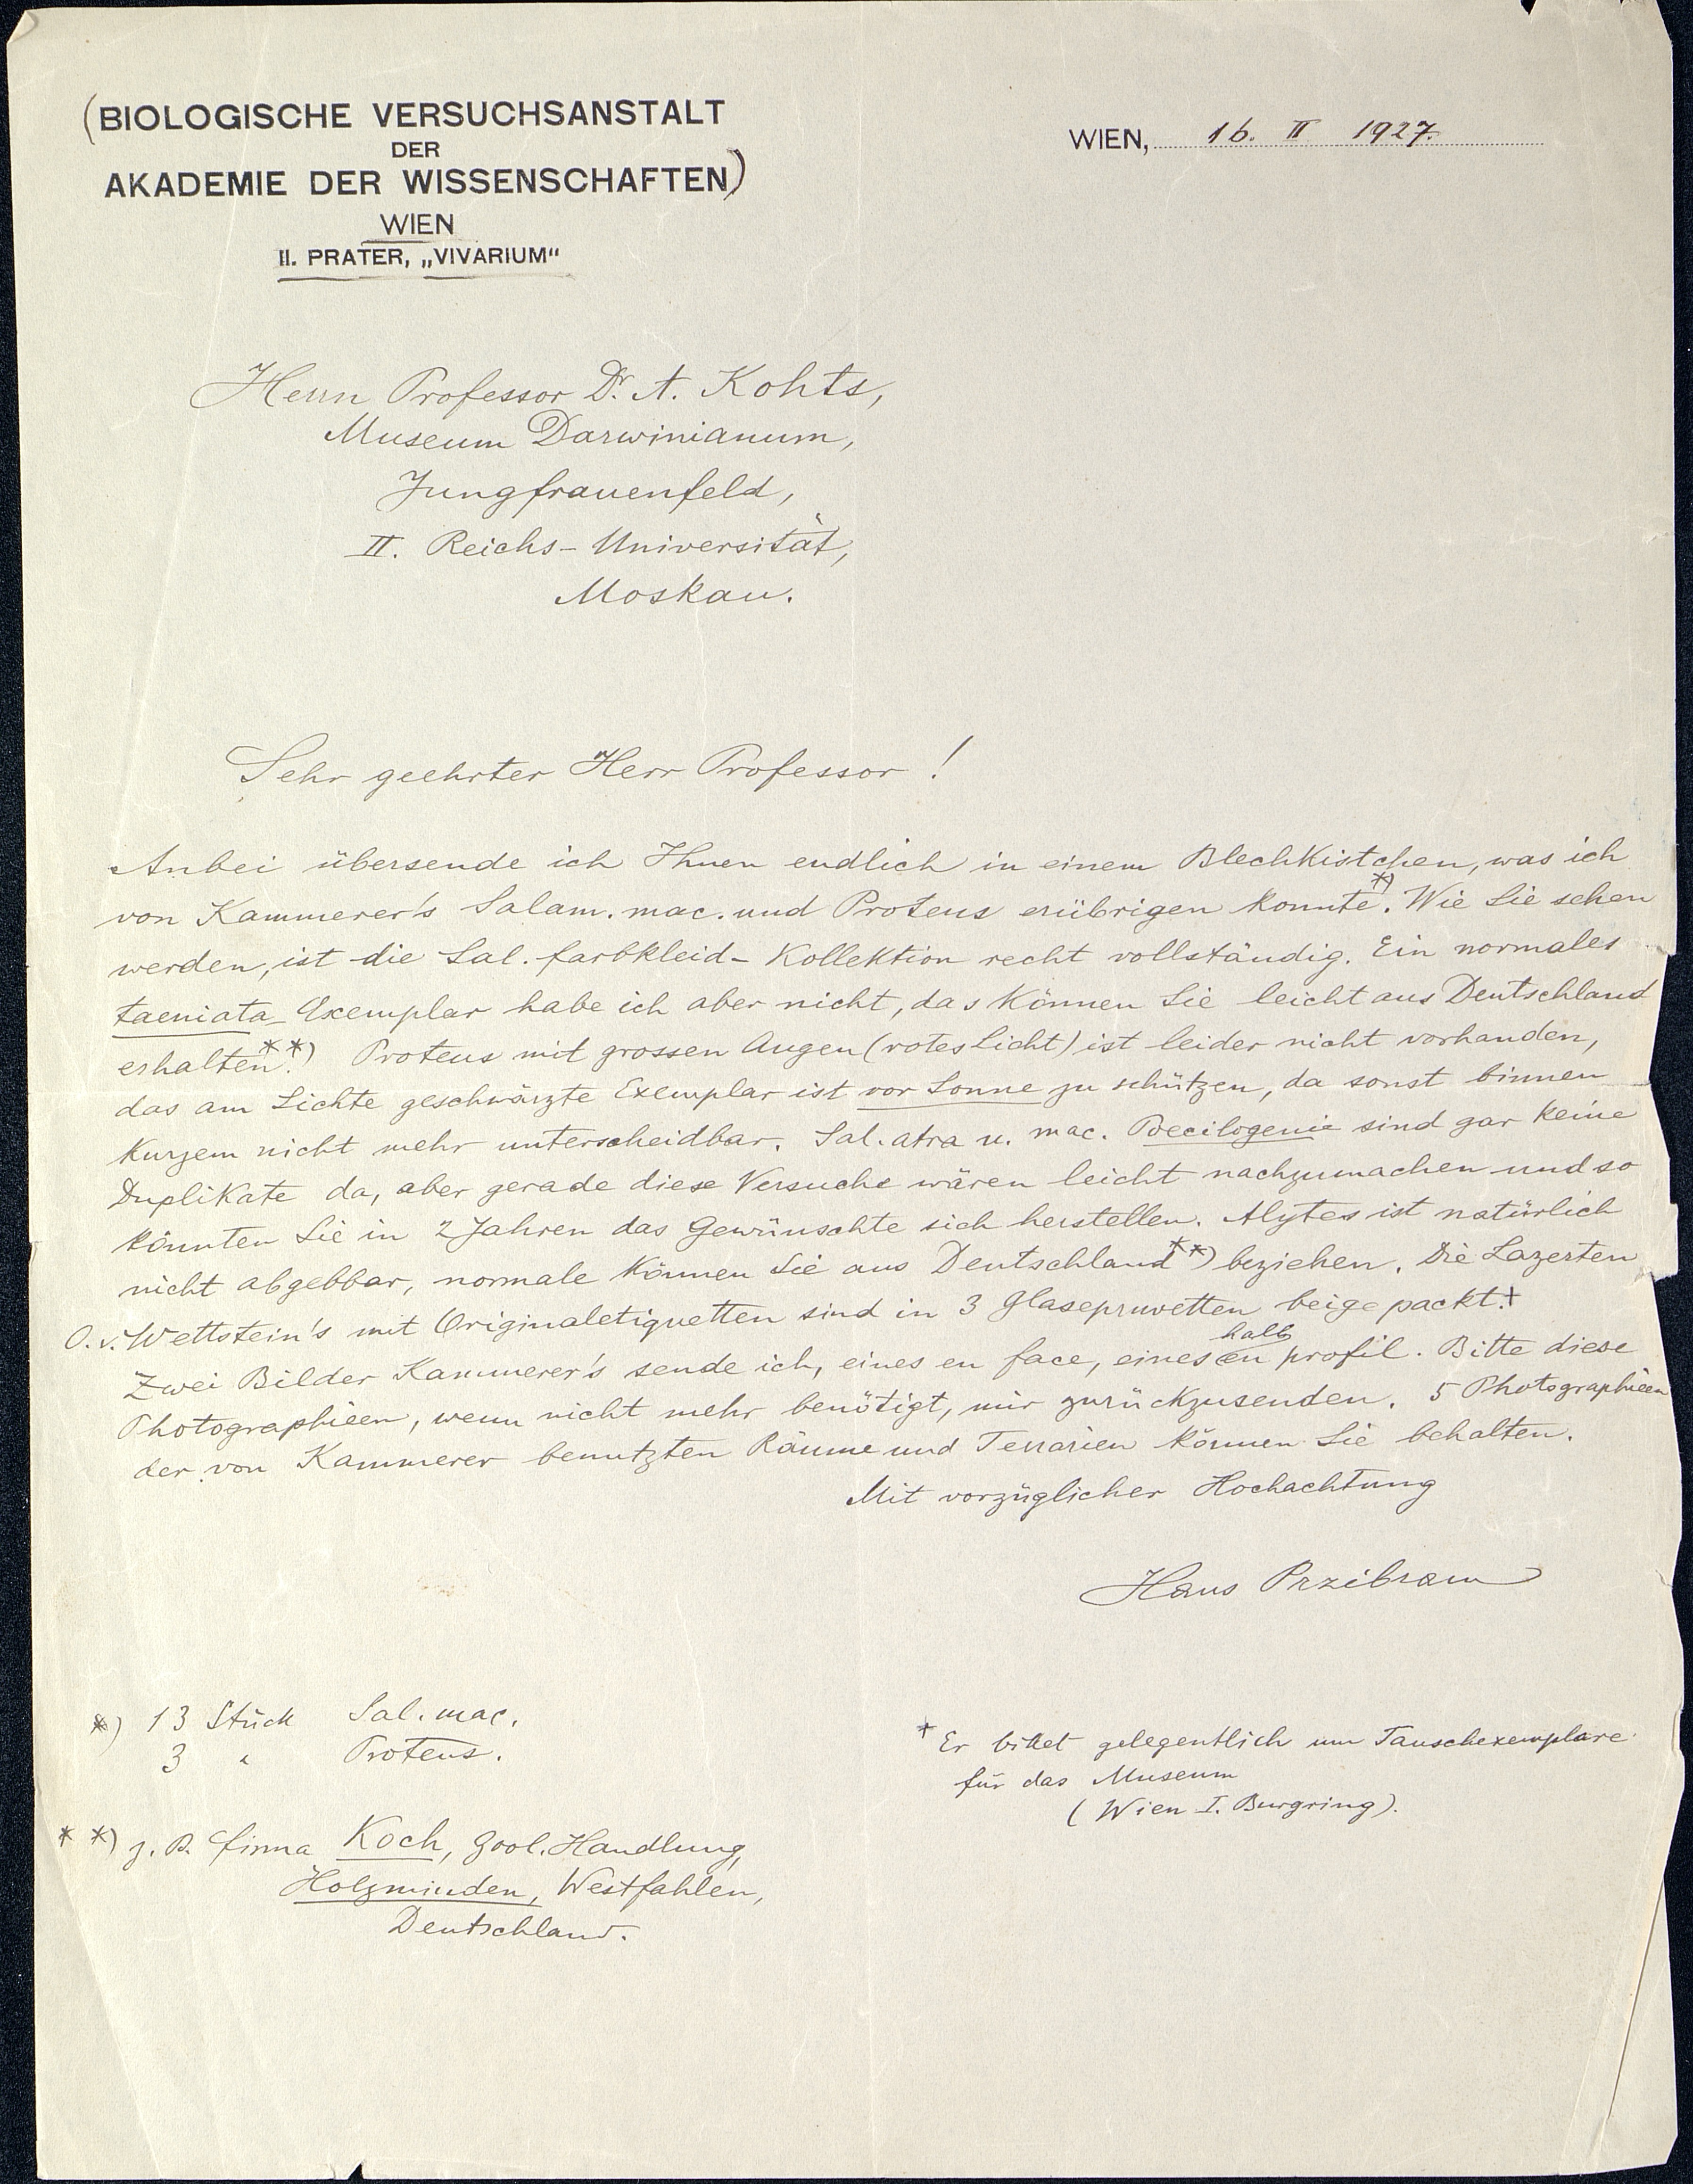 (BIOLOGISCHE VERSUCHSANSTALT
DER
AKADEMIE DER WISSENSCHAFTEN)
WIEN
II. PRATER, „VIVARIUM“
WIEN, 16. II 1927.
Herrn Professor Dr. A. Kohts,
Museum Darwinianum,
Jungfrauenfeld,
II. Reichs-Universität,
Moskau.
Sehr geehrter Herr Professor!
Anbei übersende ich Ihnen endlich in einem Blechkistchen, was ich
von Kammerer's Salam. mac. und Proteus erübrigen konnte*). Wie Sie sehen
werden, ist die Sal. farbkleid-Kollektion recht vollständig. Ein normales
taeniata Exemplar habe ich aber nicht, das können Sie leicht aus Deutschland
erhalten.**) Proteus mit grossen Augen (rotes Licht) ist leider nicht vorhanden,
das am Lichte geschwärzte Exemplar ist vor Sonne zu schützen, da sonst binnen
kurzem nicht mehr unterscheidbar. Sal. atra u. mac. Poecilogenie sind gar keine
Duplikate da, aber gerade diese Versuche wären leicht nachzumachen und so
könnten Sie in 2 Jahren das Gewünschte sich herstellen. Alytes ist natürlich
nicht abgebbar, normale können Sie aus Deutschland**) beziehen. Die Lazerten
O. v. Wettstein's mit Originaletiquetten sind in 3 Glasepruvetten beigepackt.+
Zwei Bilder Kammerer's sende ich, eines en face, eines en halb profil. Bitte diese
Photographieen, wenn nicht mehr benötigt, mir zurückzusenden. 5 Photographieen
der von Kammerer benutzten Räume und Terrarien können Sie behalten.
Mit vorzüglicher Hochachtung
Hans Przibram
*) 13 Stück Sal. mac.
3 " Proteus.
**) z. B. firma Koch, Zool. Handlung,
Holzminden, Westfahlen,
Deutschland.
+ Er bittet gelegentlich um Tauschexemplare
für das Museum
(Wien I. Burgring).